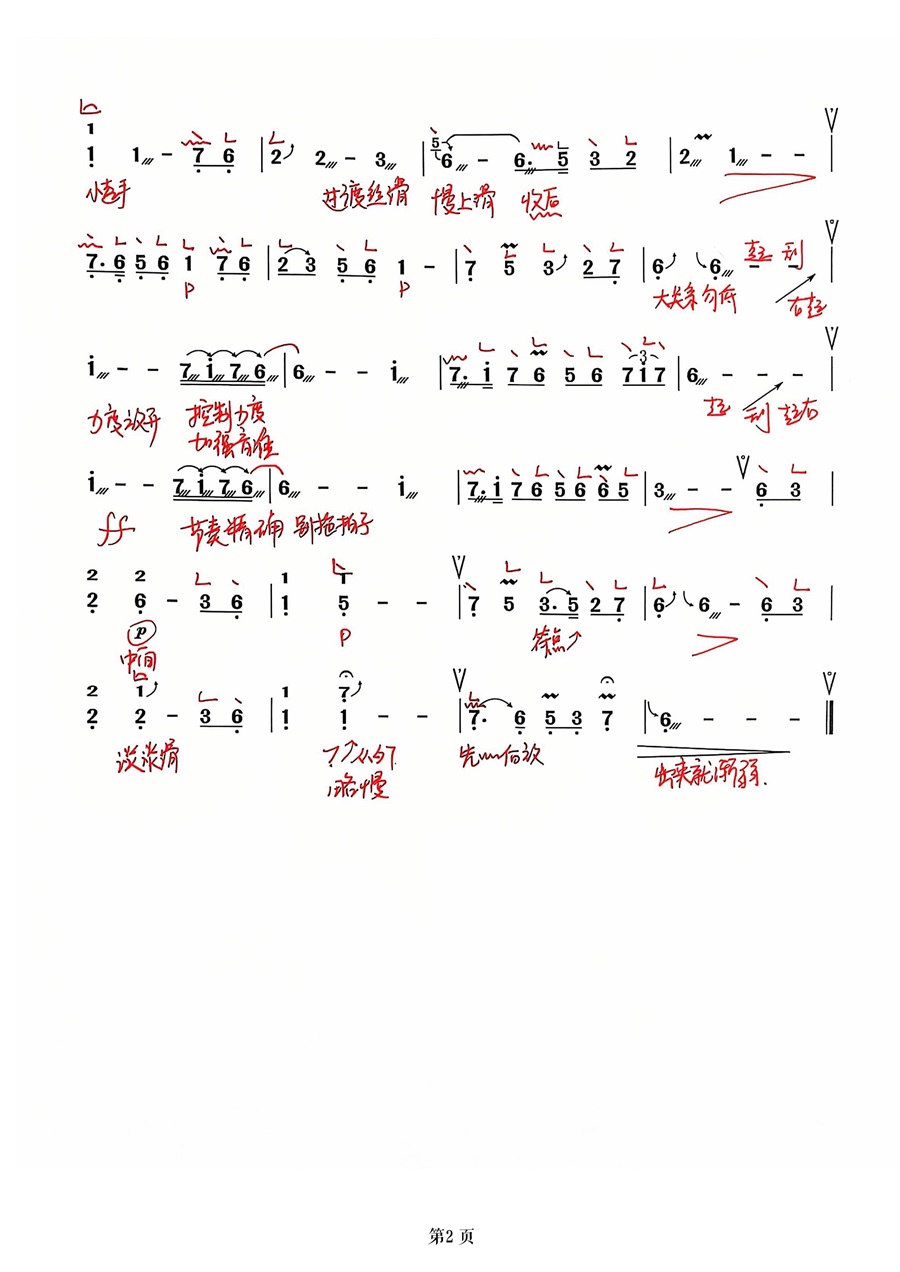 1
1 1 - 7 6 | 2 2 - 3 | 5 6 - 6. 5 3 2 | 2 1 - - |
小撮手 过渡丝滑 慢上滑 收后
7. 6 5 6 1 7 6 | 2 3 5 6 1 - | 7 5 3 2 7 | 6 6 - - |
p p 大关系勾低
i - - 7 i 7 6 | 6 - - i | 7. i 7 6 5 6 3 7 i 7 | 6 - - - |
力度放开 控制力度
加强音准
i - - 7 i 7 6 | 6 - - i | 7. i 7 6 5 6 6 5 | 3 - - 6 3 |
ff 节奏精确 别拖拍子
2 2 1 1
2 6 - 3 6 | 1 5 - - | 7 5 3. 5 2 7 | 6 6 - 6 3 |
p p 符点
中间
2 1 1 7
2 2 - 3 6 | 1 1 - - | 7. 6 5 3 7 | 6 - - - ||
淡淡滑 出来就渐弱.
略慢
第2 页